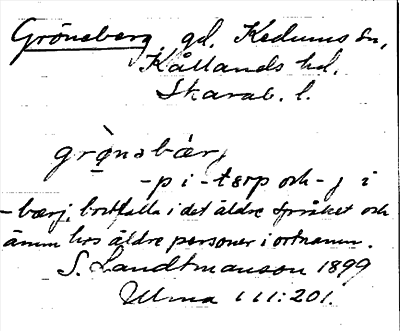 Gröneberg, gd, Kedums sn,
Kållands hd,
Skarab. l.
grö̀nsbárj
-p i -tɛrp och -j i
-bærj, bortfalla i det äldre språket och
ännu hos äldre personer i ortnamn.
S. Landtmanson 1899
Ulma 111:201.